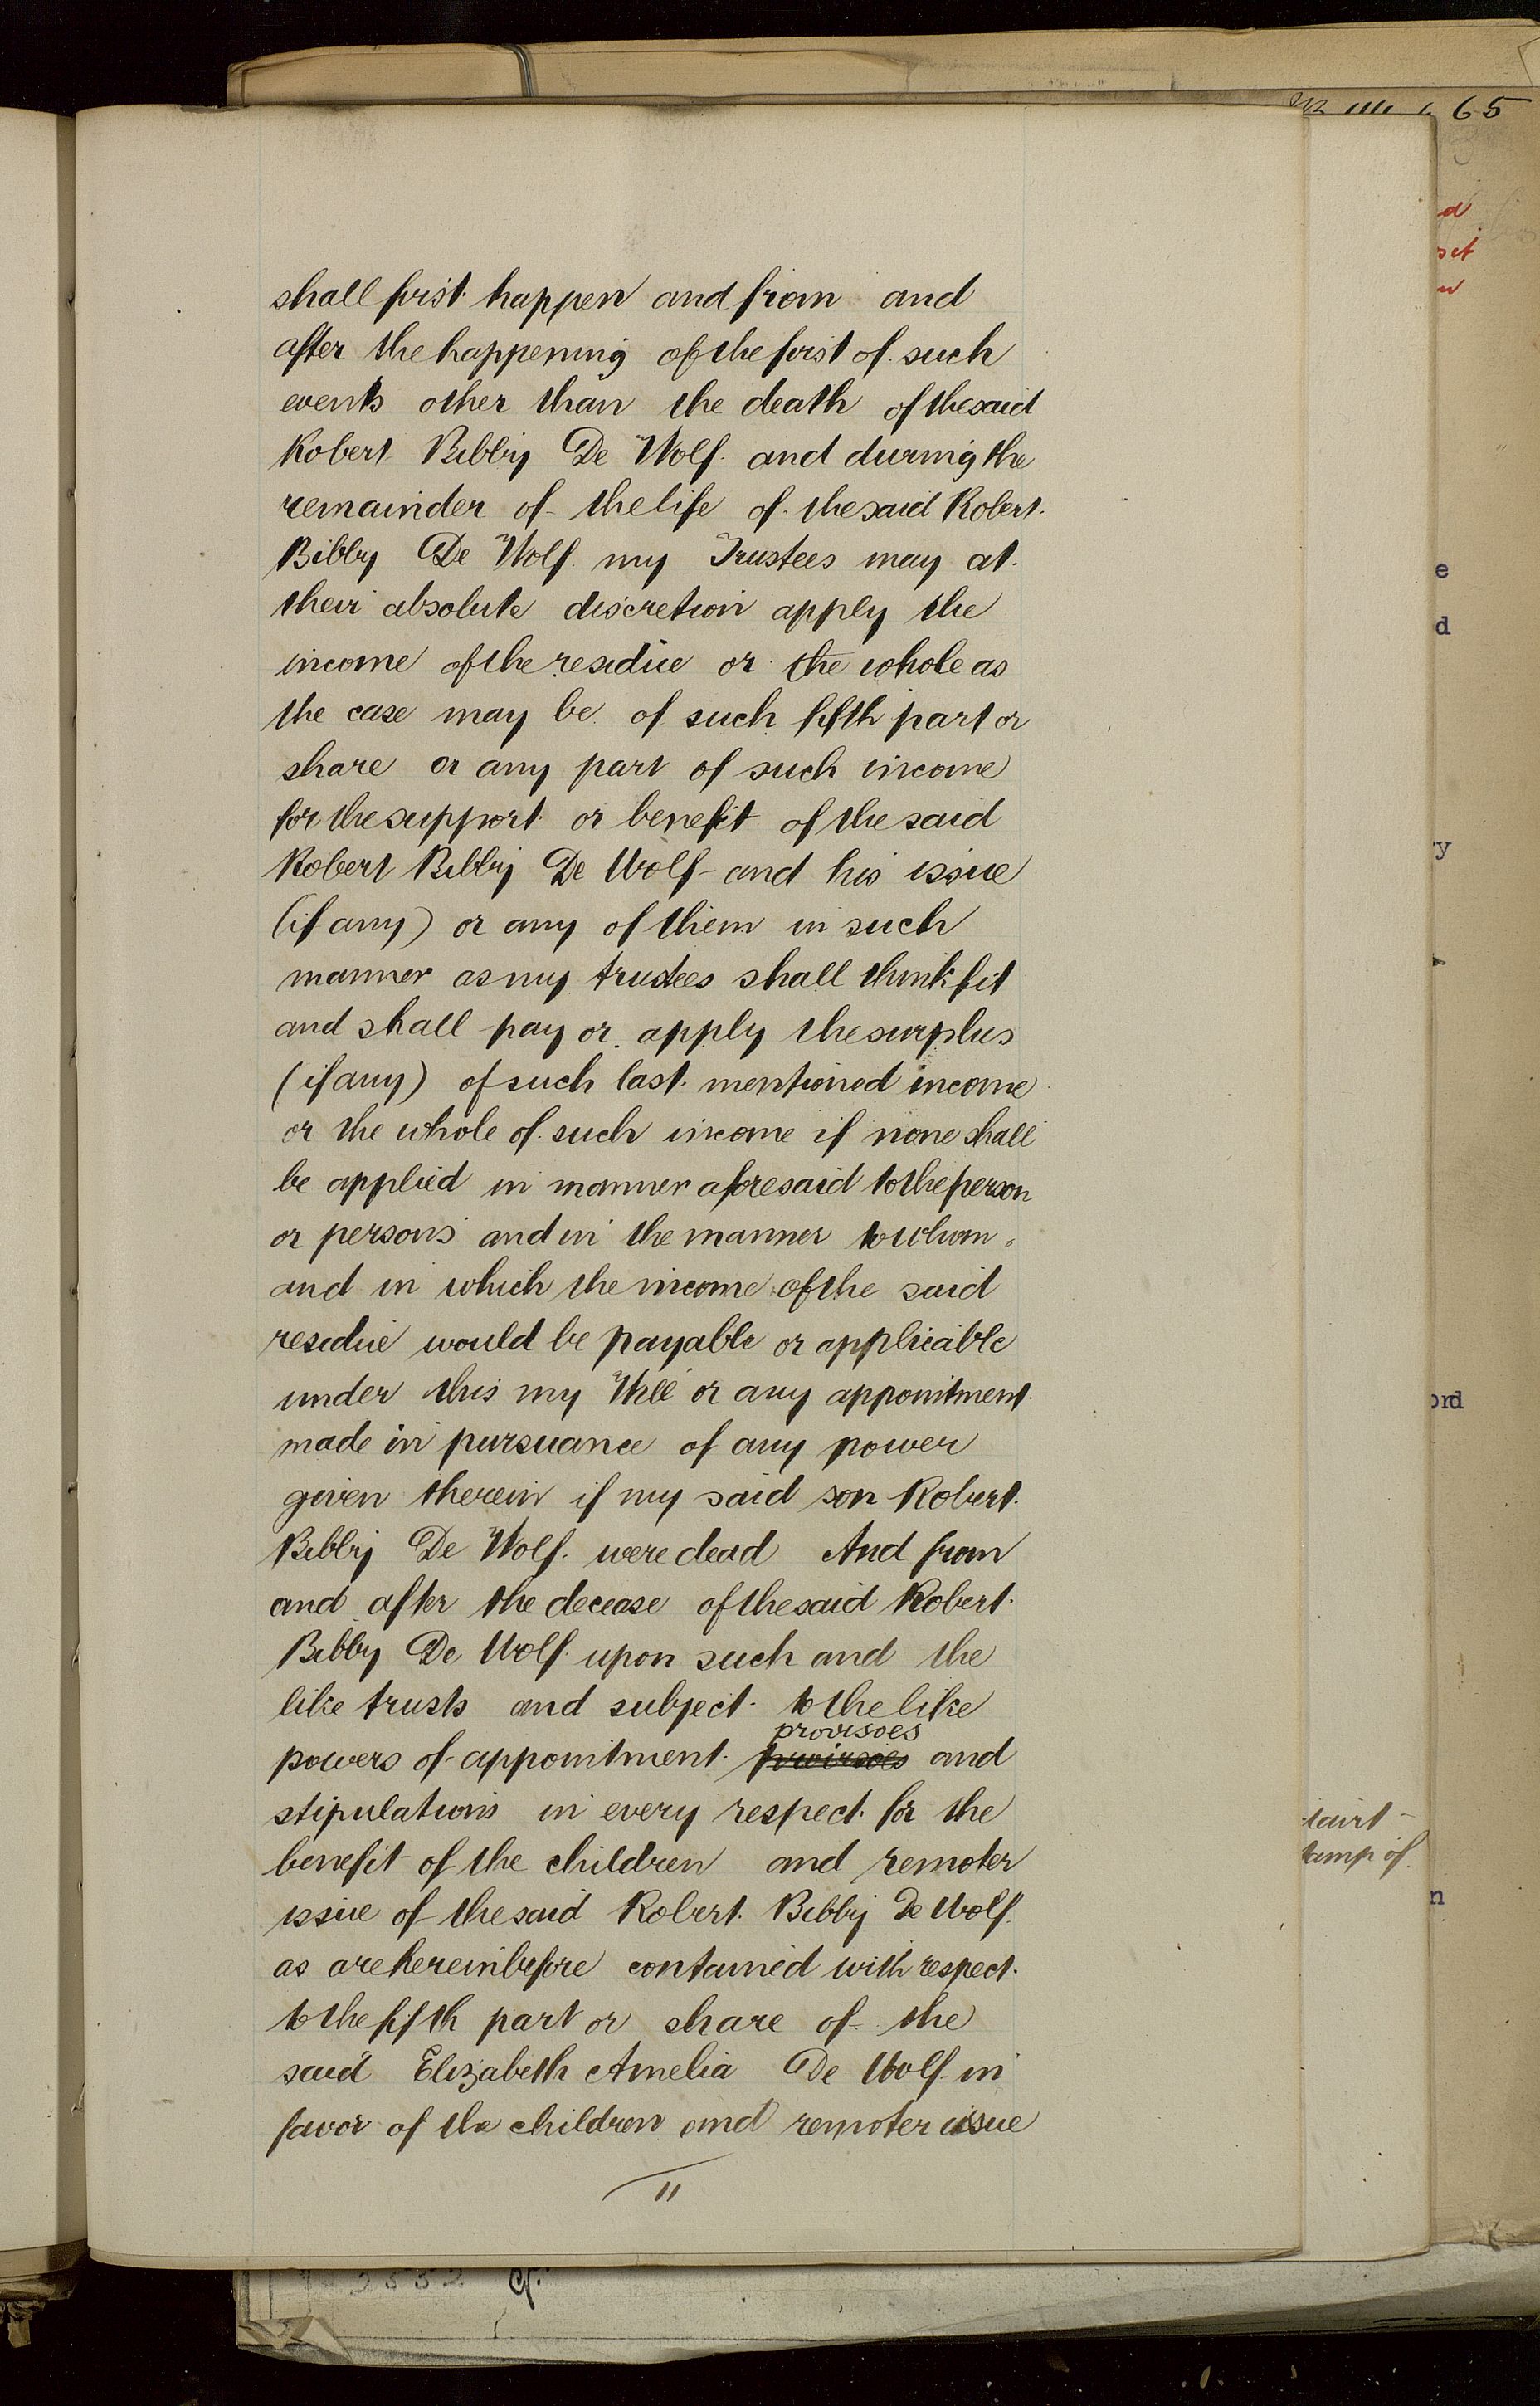 65
d
set
shall first happen and from and
after the happening of the first of such
events other than the death of the said
Robert Bibby De Wolf and during the
remainder of the life of the said Robert
Bibby De Wolf my Trustees may at
their absolute discretion apply the
income of the residue or the whole as
the case may be of such fifth part or
share or any part of such income
for the support or benefit of the said
Robert Bibby De Wolf and his issue
(if any) or any of them in such
manner as my trustees shall think fit
and shall pay or apply the surplus
(if any) of such last mentioned income
or the whole of such income if none shall
be applied in manner aforesaid to the person
or persons and in the manner to whom
and in which the income of the said
residue would be payable or applicable
under this my Will or any appointment
made in pursuance of any power
given therein if my said son Robert
Bibby De Wolf were dead And from
and after the decease of the said Robert
Bibby De Wolf upon such and the
like trusts and subject to the like
provisoes
powers of appointment and
stipulations in every respect for the
benefit of the children and remoter
issue of the said Robert Bibby De Wolf
as are hereinbefore contained with respect
to the fifth part or share of the
said Elizabeth Amelia De Wolf in
favor of the children and remoter issue
11
e
d
y
ord
tamp of
n